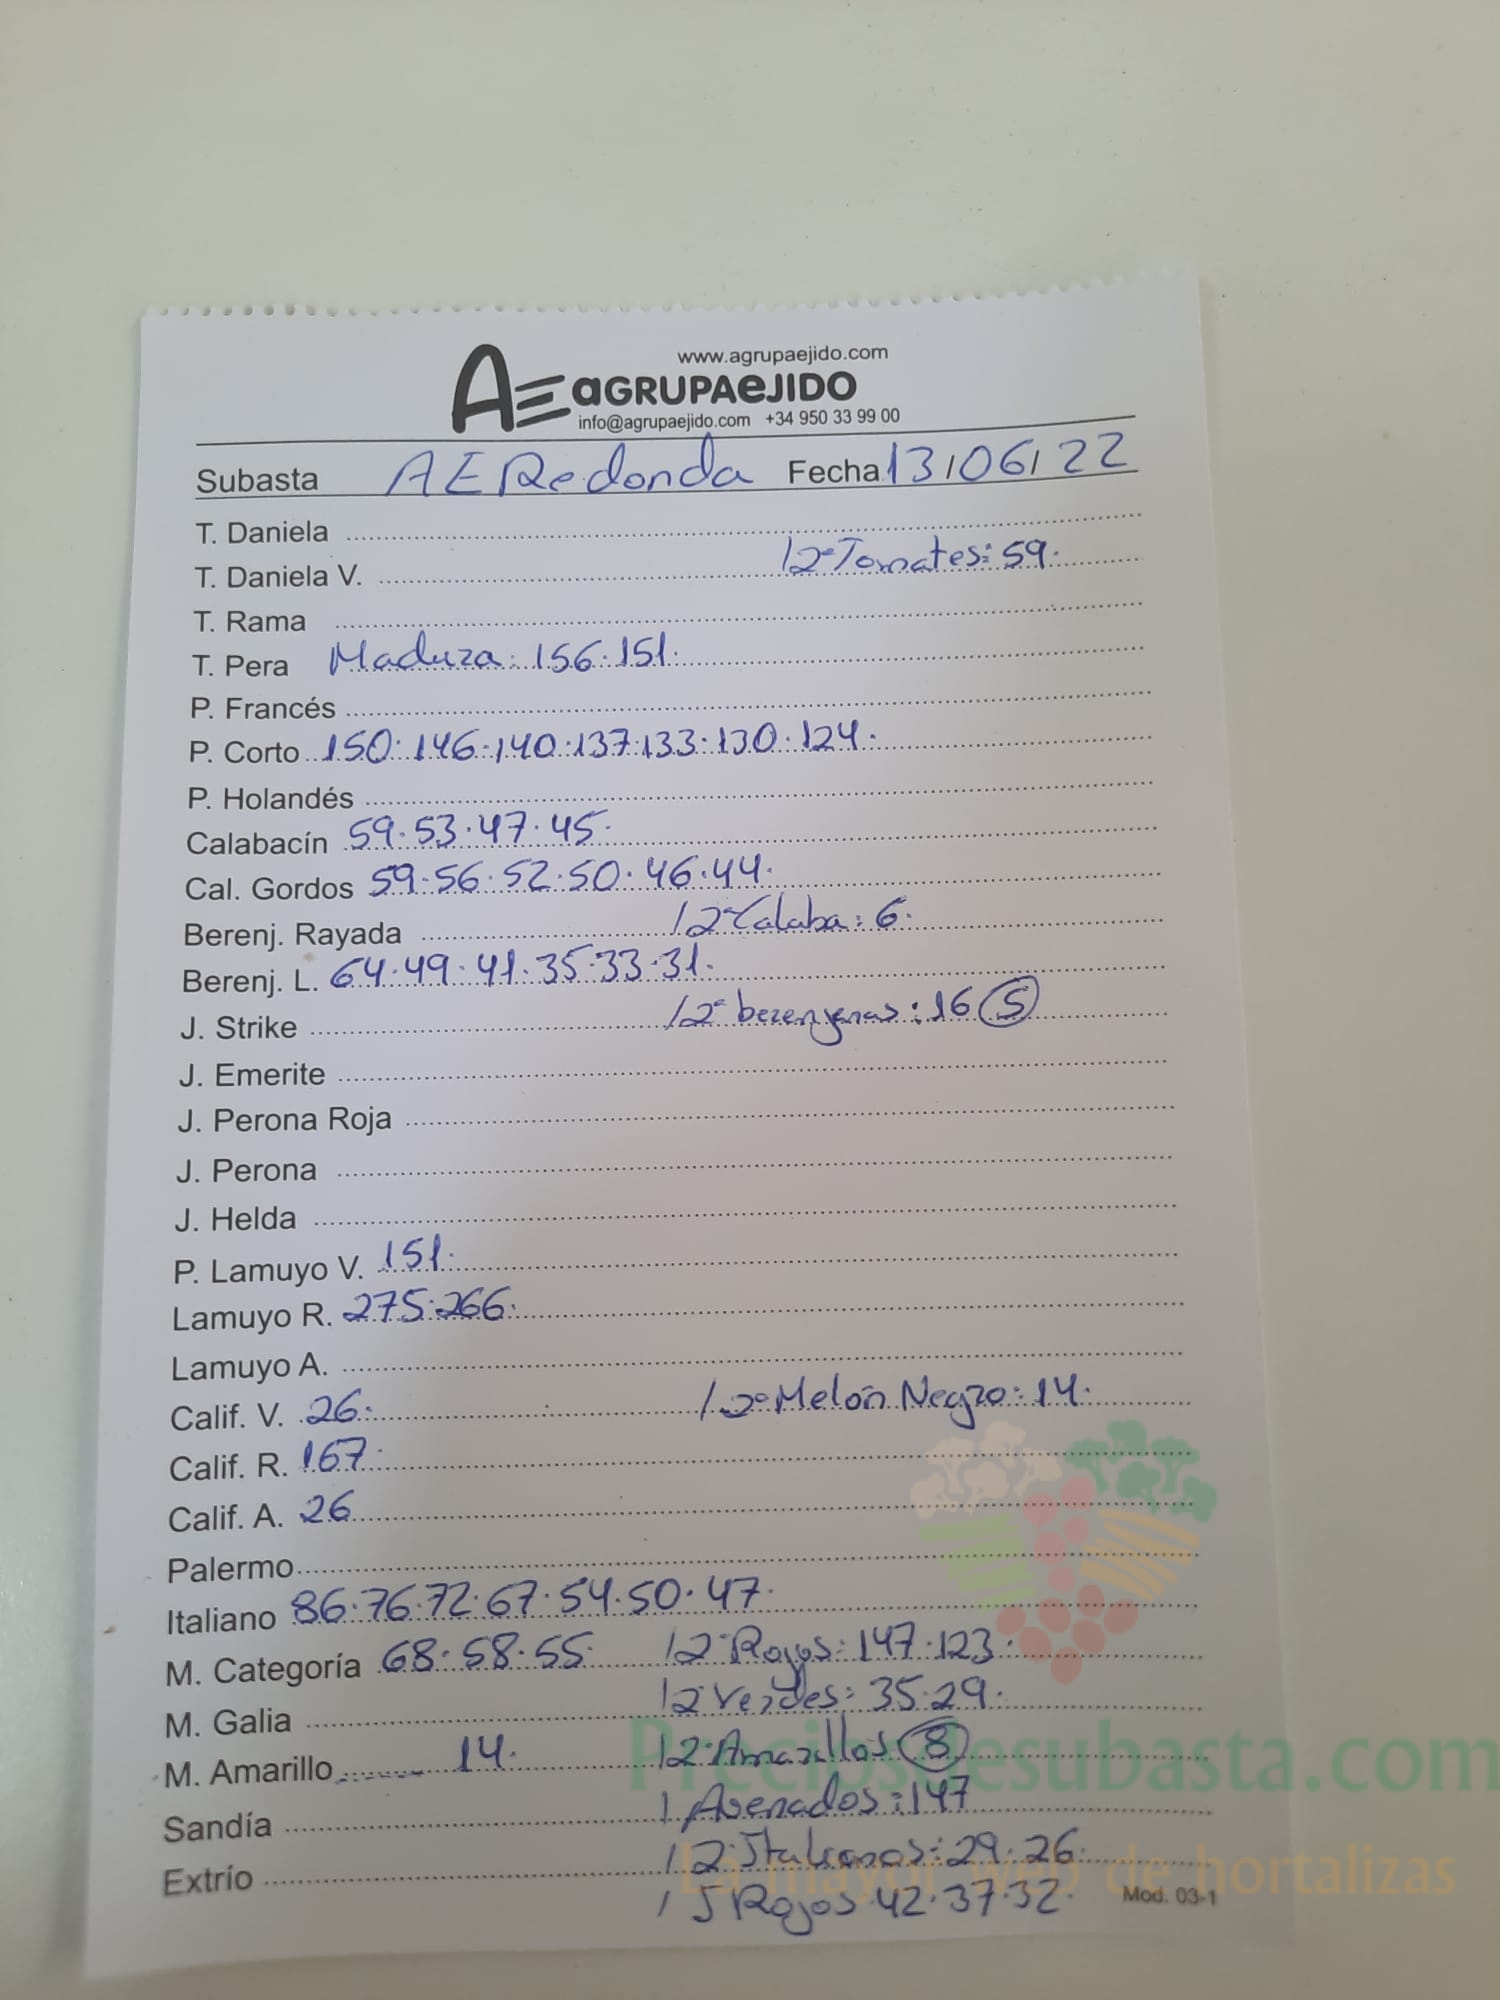 www.agrupaejido.com
AE aGRUPAeJIDO
info@agrupaejido.com +34 950 33 99 00
Subasta AE Redonda Fecha 13/06/22
T. Daniela
T. Daniela V. / 2ª Tomates: 59.
T. Rama
T. Pera Madura: 156.151.
P. Francés
P. Corto 150.146.140.137.133.130.124.
P. Holandés
Calabacín 59.53.47.45.
Cal. Gordos 59.56.52.50.46.44.
Berenj. Rayada / 2ª Calaba: 6.
Berenj. L. 64.49.41.35.33.31.
J. Strike / 2ª berenjenas: 16 (5)
J. Emerite
J. Perona Roja
J. Perona
J. Helda
P. Lamuyo V. 151.
Lamuyo R. 275.266.
Lamuyo A.
Calif. V. 26. / 2ª Melón Negro: 14.
Calif. R. 167.
Calif. A. 26
Palermo
Italiano 86.76.72.67.54.50.47.
M. Categoría 68.58.55. / 2ª Rojos: 147.123.
M. Galia / 2ª Verdes: 35.29.
M. Amarillo 14. / 2ª Amarillos (8)
Sandía / Asenados: 147
Extrío / 2ª Italianos: 29.26.
/ J Rojos 42.37.32.
Mod. 03-1
Preciosdesubasta.com
La mayor web de hortalizas